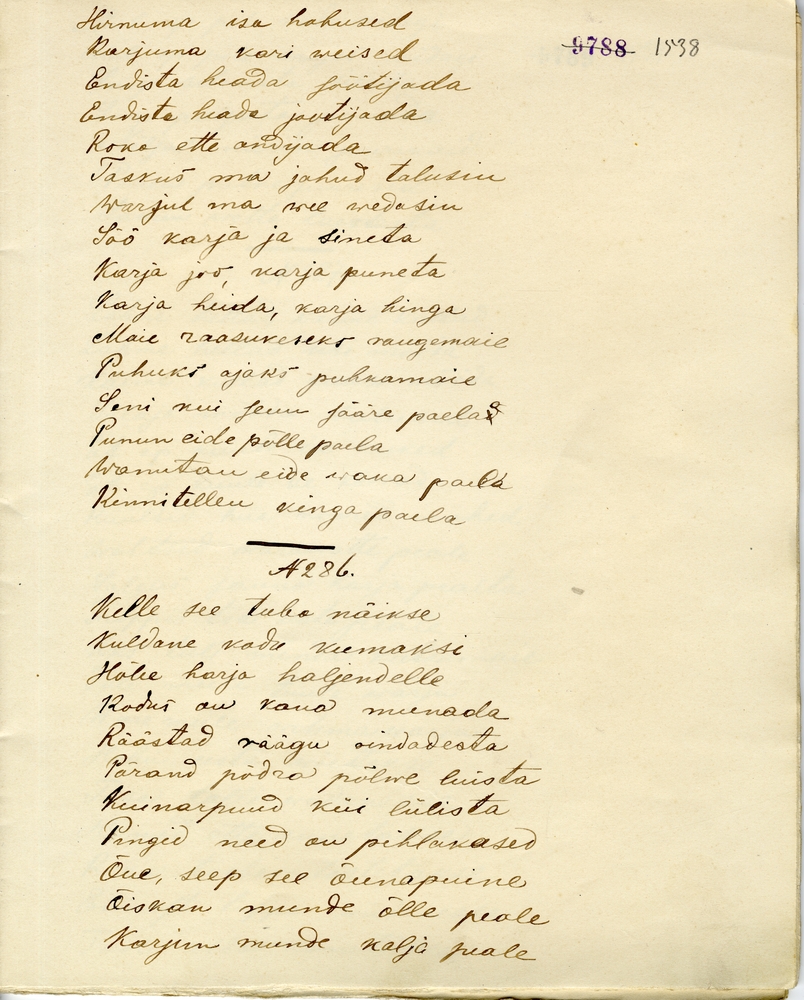 Hirnuma isa hobused
9788 1538
Karjuma kari weised
Endista heada söötijada
Endista heada jootijada
Roka ette andijada
Taskus ma jahud talusin
Warjul ma wee wedasin
Söö karja ja sineta
Karja joo, karja puneta
Karja heida, karja hinga
Maie raasukeseks raugemaie
Puhuks ajaks puhkamaie
Seni kui seun sääre paelad
Punun eide põlle paela
Wanutan eide waka paela
Kinnitellen kinga paela
N286.
Kelle see tuba näikse
Kuldane kodu kumaksi
Hõbe harja haljendelle
Kodus on kana munada
Räästad räägu rindadesta
Pärand põdra põlwe luista
Kuinarpuud küi lülista
Pingid need on pihlakased
Õue, seep see õunapuine
Õiskan munde õlle peale
Karjun munde kalja peale